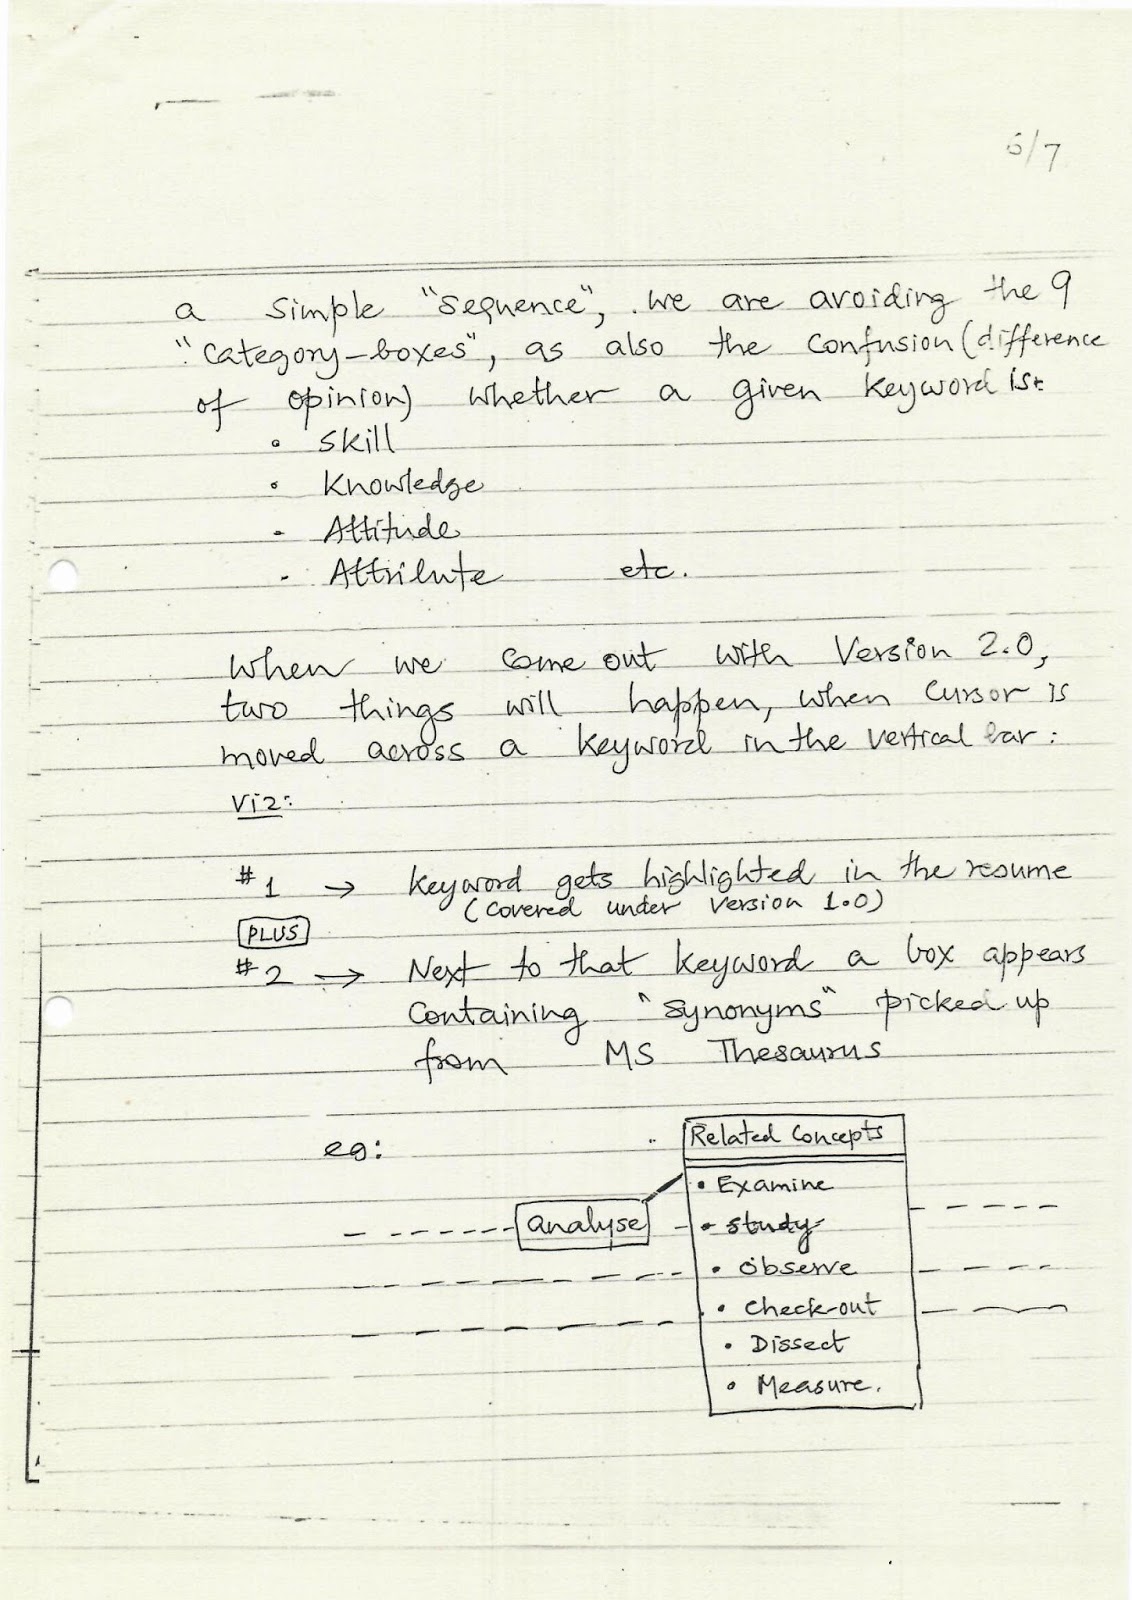 6/7
a simple "sequence", we are avoiding the 9
"category-boxes", as also the confusion (difference
of opinion) whether a given keyword is:
• Skill
• Knowledge
• Attitude
• Attribute etc.
When we come out with Version 2.0,
two things will happen, when cursor is
moved across a keyword in the vertical bar:
Viz:
#1 → Keyword gets highlighted in the resume
(covered under Version 1.0)
PLUS
#2 → Next to that keyword a box appears
containing "synonyms" picked up
from MS Thesaurus
eg:
Related Concepts
• Examine
analyse • Study
• Observe
• Check-out
• Dissect
• Measure.